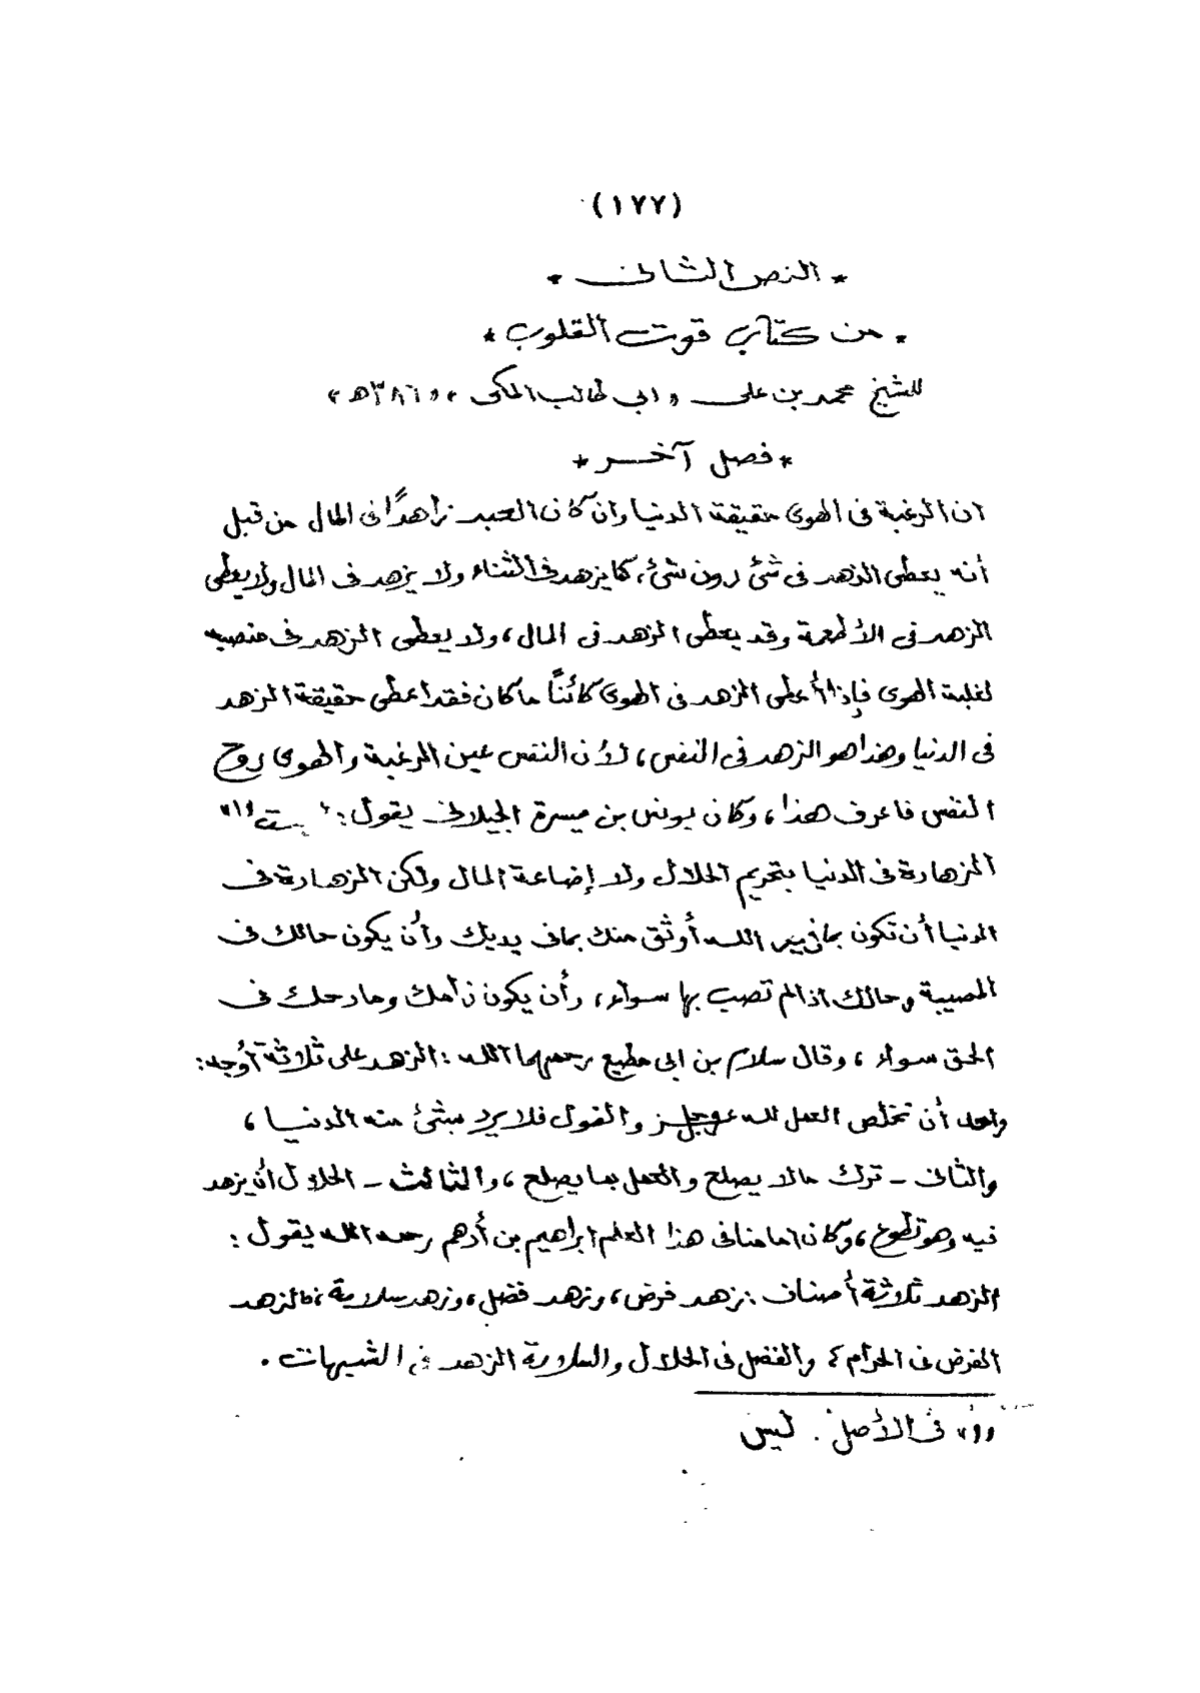 (١٧٧)
* النص الثانى *
* من كتاب قوت القلوب *
للشيخ محمد بن على « ابى طالب المكى » « ٣٨٦ هـ »
* فصل آخر *
ان الرغبة فى الهوى حقيقة الدنيا وان كان العبد زاهدًا فى المال من قبل
أنه يعطى الزهد فى شئ دون شئ، كما يزهد فى الثناء ولا يزهد فى المال ولا يعطى
الزهد فى الأطعمة وقد يعطى الزهد فى المال، ولا يعطى الزهد فى منصبه
لغلبة الهوى فإذا أعطى الزهد فى الهوى كائنًا ما كان فقد اعطى حقيقة الزهد
فى الدنيا وهذا هو الزهد فى النفس، لأن النفس عين الرغبة والهوى روح
النفس فاعرف هذا، وكان يونس بن ميسرة الجيلانى يقول: ليست «١»
الزهادة فى الدنيا بتحريم الحلال ولا إضاعة المال ولكن الزهادة فى
الدنيا أن تكون بما فى يد الله أوثق منك بما فى يديك وأن يكون حالك فى
المصيبة وحالك اذا لم تصب بها سواء، وأن يكون ذامك ومادحك فى
الحق سواء، وقال سلام بن ابى مطيع رحمهما الله : الزهد على ثلاثة أوجه:
واحد أن تخلص العمل لله عز وجل والقول فلا يرد بشئ منه الدنيا،
والثانى - ترك مالا يصلح والعمل بما يصلح، والثالث - الحلال أن يزهد
فيه وهو تطوع، وكان امامنا فى هذا العلم ابراهيم بن أدهم رحمه الله يقول :
الزهد ثلاثة أصناف : زهد فرض، وزهد فضل، وزهد سلامة، فالزهد
الفرض فى الحرام، والفضل فى الحلال والسلامة الزهد فى الشبهات .
«١» فى الأصل . ليس